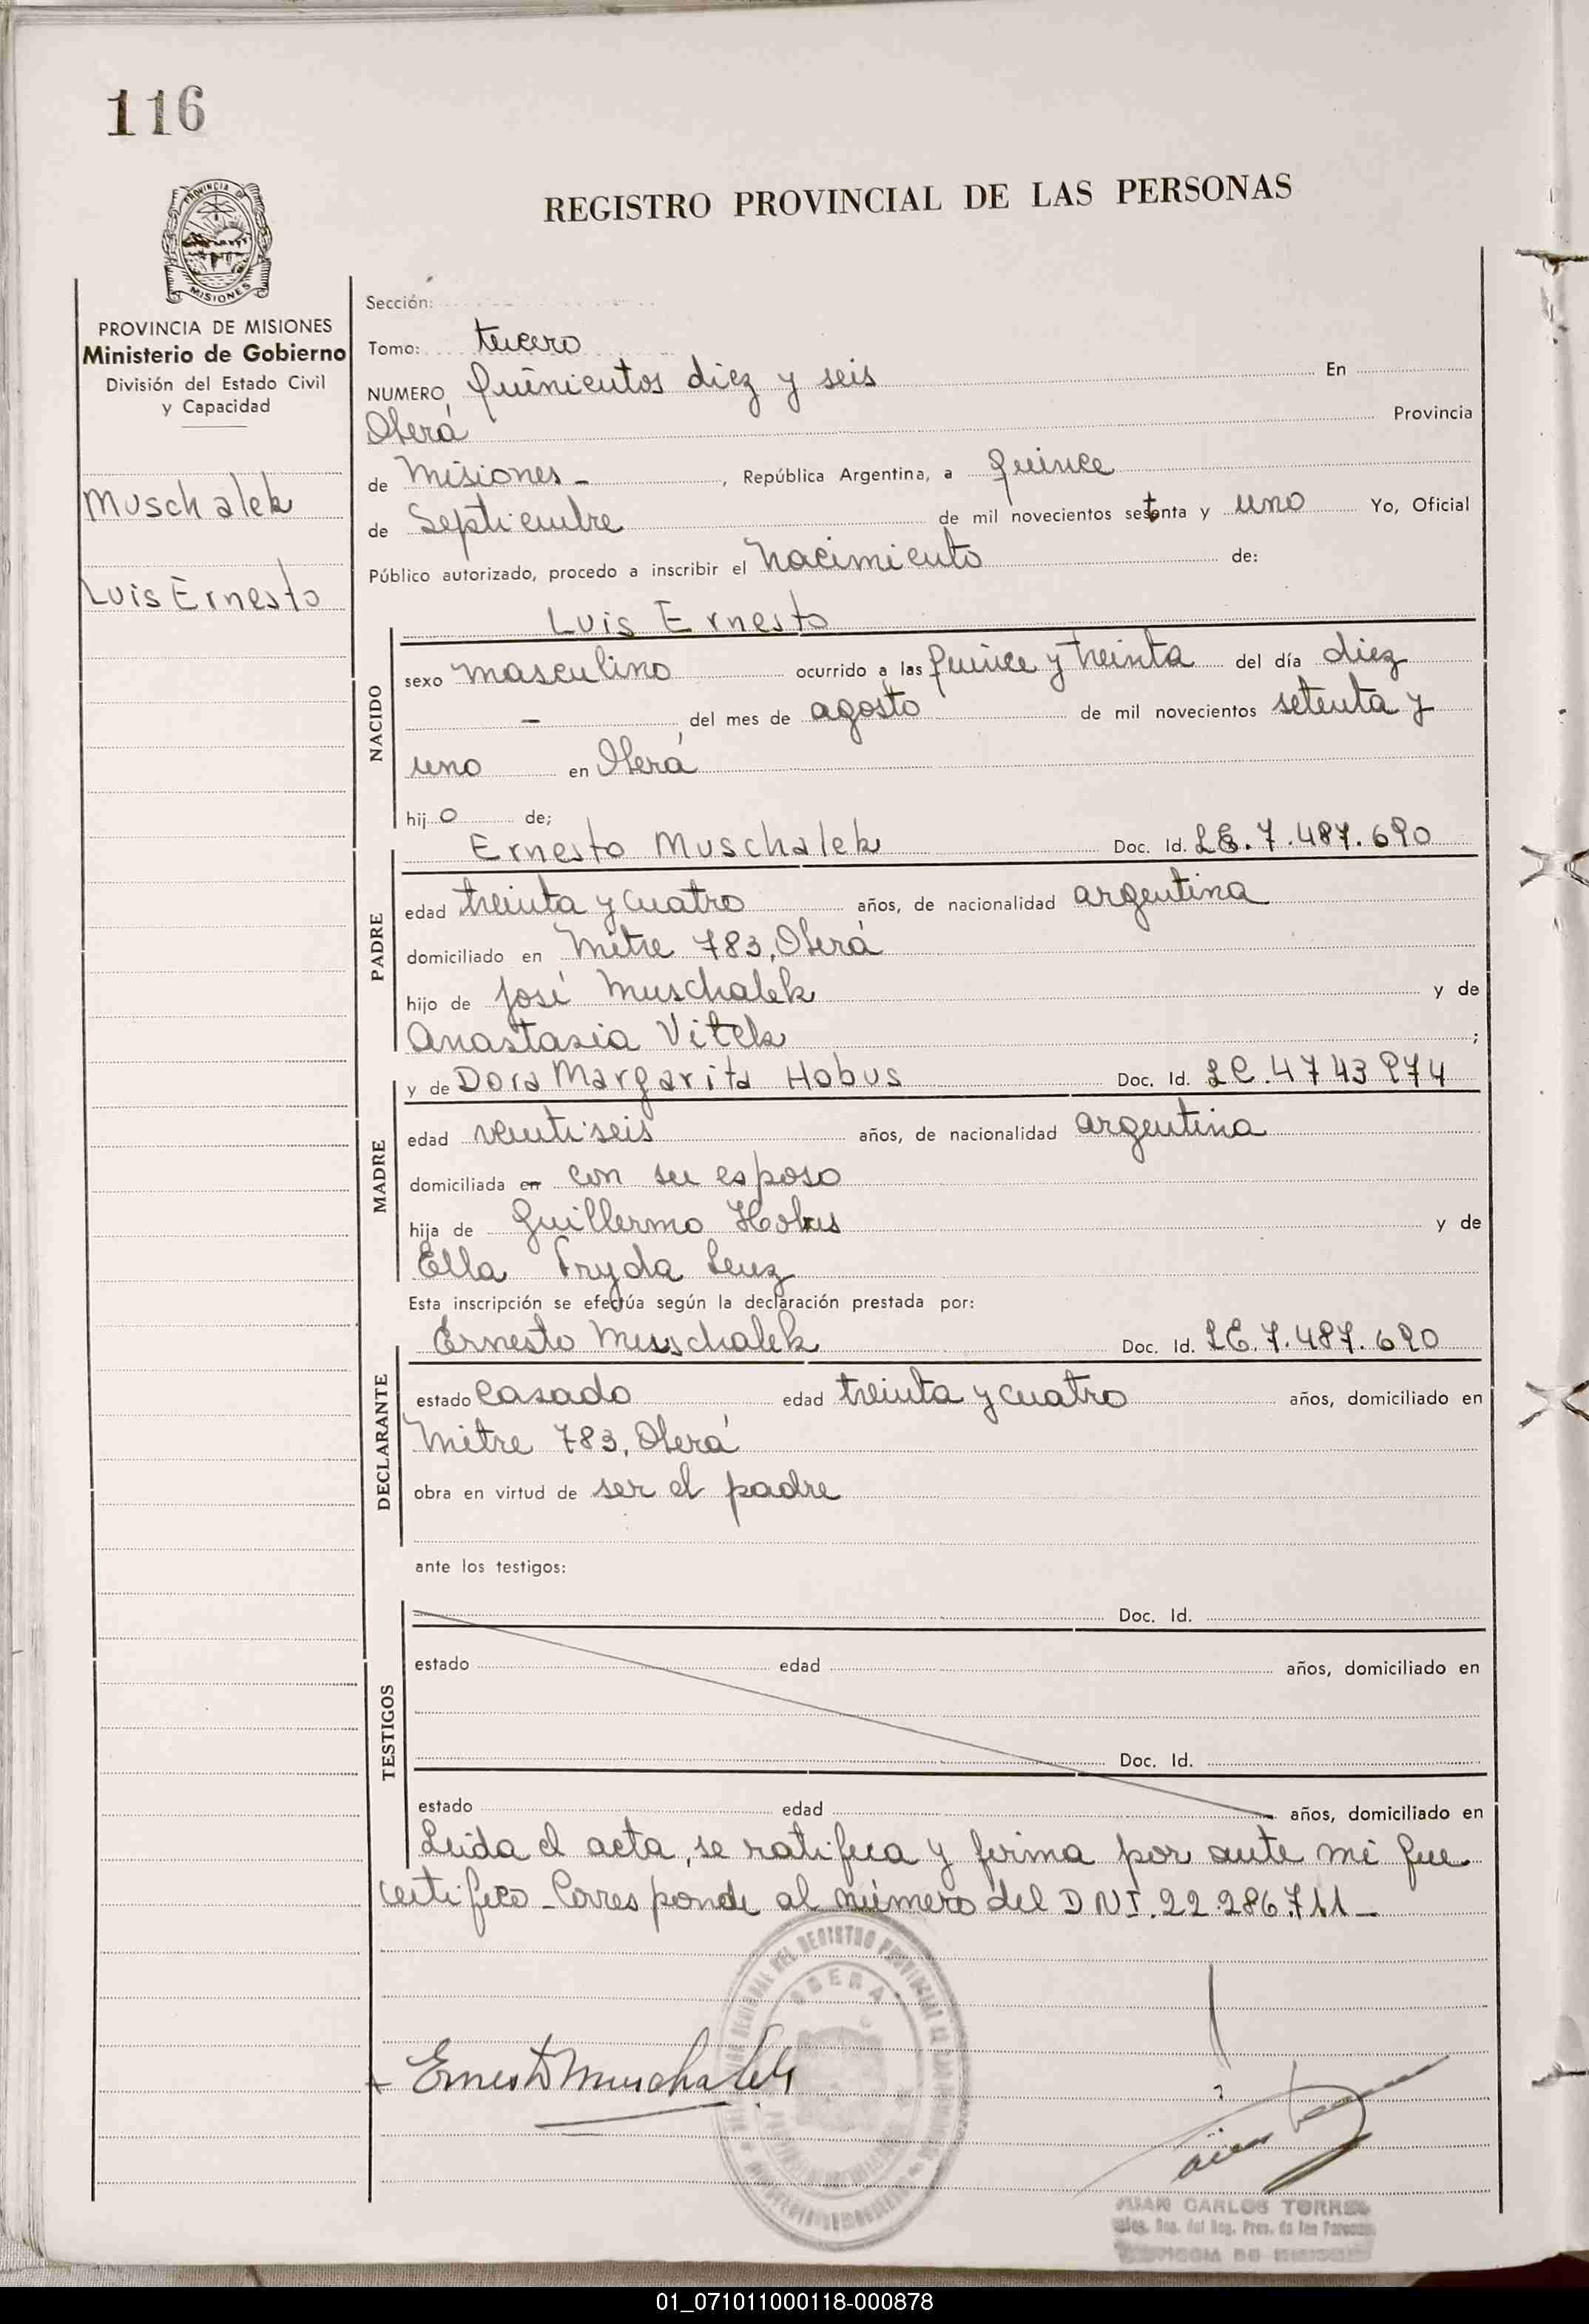 116
REGISTRO PROVINCIAL DE LAS PERSONAS
PROVINCIA DE
MISIONES
PROVINCIA DE MISIONES
Ministerio de Gobierno
División del Estado Civil
y Capacidad
Muschalek
Luis Ernesto
Sección:
Tomo: tercero
NUMERO Quinientos diez y seis En
Oberá Provincia
de Misiones - , República Argentina, a quince
de Septiembre de mil novecientos setenta y uno Yo, Oficial
Público autorizado, procedo a inscribir el nacimiento de:
Luis Ernesto
NACIDO
sexo masculino ocurrido a las quince y treinta del día diez
- del mes de agosto de mil novecientos setenta y
uno en Oberá
hijo de;
Ernesto Muschalek Doc. Id. LE. 7.487.690
PADRE
edad treinta y cuatro años, de nacionalidad argentina
domiciliado en Mitre 783, Oberá
hijo de José Muschalek y de
Anastasia Vitek ;
y de Dora Margarita Hobus Doc. Id. LC. 4743974
MADRE
edad veintiseis años, de nacionalidad argentina
domiciliada en con su esposo
hija de Guillermo Hobus y de
Ella Fryda Lenz
Esta inscripción se efectúa según la declaración prestada por:
Ernesto Muschalek Doc. Id. LE. 7.487.690
DECLARANTE
estado casado edad treinta y cuatro años, domiciliado en
Mitre 783, Oberá
obra en virtud de ser el padre
ante los testigos:
TESTIGOS
Doc. Id.
estado edad años, domiciliado en
Doc. Id.
estado edad años, domiciliado en
Leida el acta, se ratifica y firma por ante mi que
certifico - Corresponde al número del DNI. 22.286.711 -
OBERA
Ernesto Muschalek
JUAN CARLOS TORRES
01_071011000118-000878